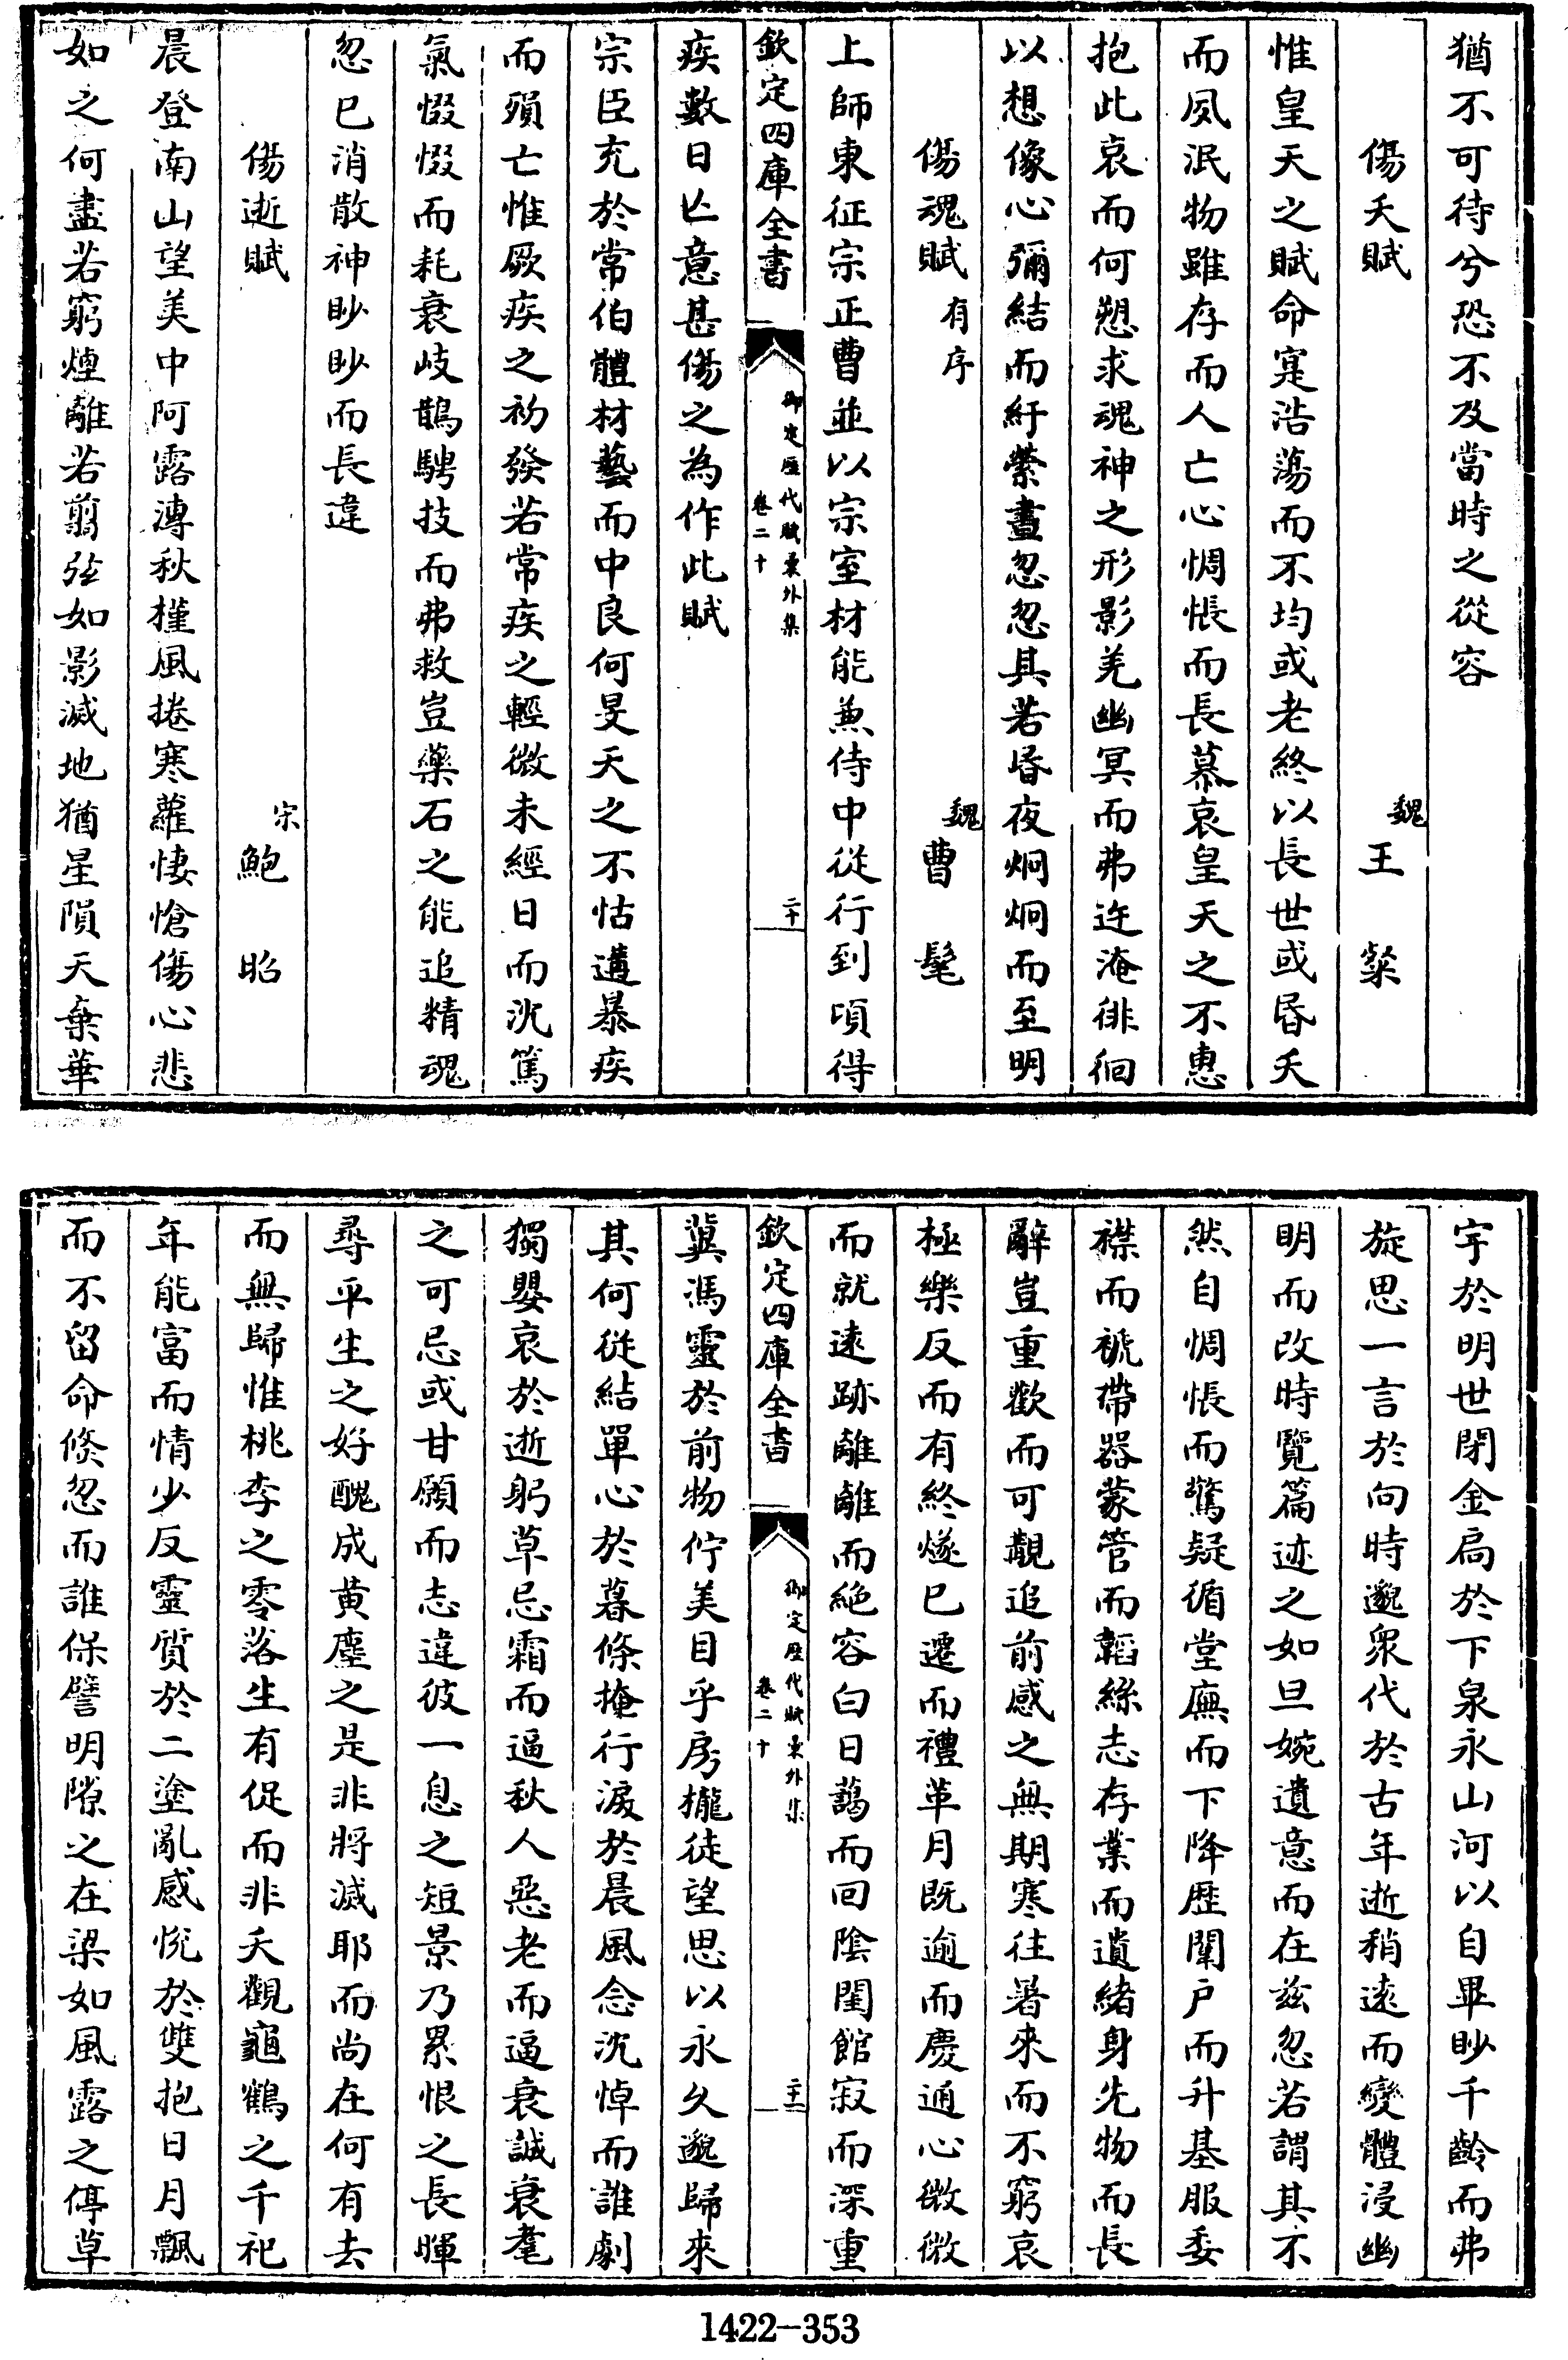 猶不可待兮恐不及當時之從容
傷夭賦　魏王粲
惟皇天之賦命寔浩蕩而不均或老終以長世或昏夭
而夙泯物雖存而人亡心惆悵而長慕哀皇天之不惠
抱此哀而何愬求魂神之形影羌幽冥而弗迕淹徘徊
以想像心彌結而紆縈晝忽忽其若昏夜炯炯而至明
傷魂賦有序　魏曹髦
上師東征宗正曹並以宗室材能兼侍中從行到項得
欽定四庫全書　御定歷代賦彙外集　卷二十　二十
疾數日亡意甚傷之為作此賦
宗臣充於常伯體材藝而中良何旻天之不怙遘暴疾
而殞亡惟厥疾之初發若常疾之輕微未經日而沈篤
氣惙惙而耗衰岐鵲騁技而弗救豈藥石之能追精魂
忽已消散神眇眇而長違
傷逝賦　宋鮑昭
晨登南山望美中阿露漙秋槿風捲寒蘿悽愴傷心悲
如之何盡若窮煙離若翦弦如影滅地猶星隕天棄華
宇於明世閉金扃於下泉永山河以自畢眇千齡而弗
旋思一言於向時邈衆代於古年逝稍遠而變體浸幽
明而改時覽篇迹之如旦婉遺意而在兹忽若謂其不
然自惆悵而驚疑循堂廡而下降歷闈戶而升基服委
襟而褫帶器蒙管而韜絲志存業而遺緒身先物而長
辭豈重歡而可覯追前感之無期寒往暑來而不窮哀
極樂反而有終燧已遷而禮革月既逾而慶通心微微
而就遠跡離離而絶容白日藹而回陰閨館寂而深重
欽定四庫全書　御定歷代賦彙外集　卷二十　二十一
冀馮靈於前物佇美目乎房櫳徒望思以永久邈歸來
其何從結單心於暮條掩行淚於晨風念沈悼而誰劇
獨嬰哀於逝躬草忌霜而逼秋人惡老而逼衰誠衰耄
之可忌或甘願而志違彼一息之短景乃累恨之長暉
尋平生之好醜成黃塵之是非將滅耶而尚在何有去
而無歸惟桃李之零落生有促而非夭觀龜鶴之千祀
年能富而情少反靈質於二塗亂感悅於雙抱日月飄
而不留命倏忽而誰保譬明隙之在梁如風露之停草
1422-353